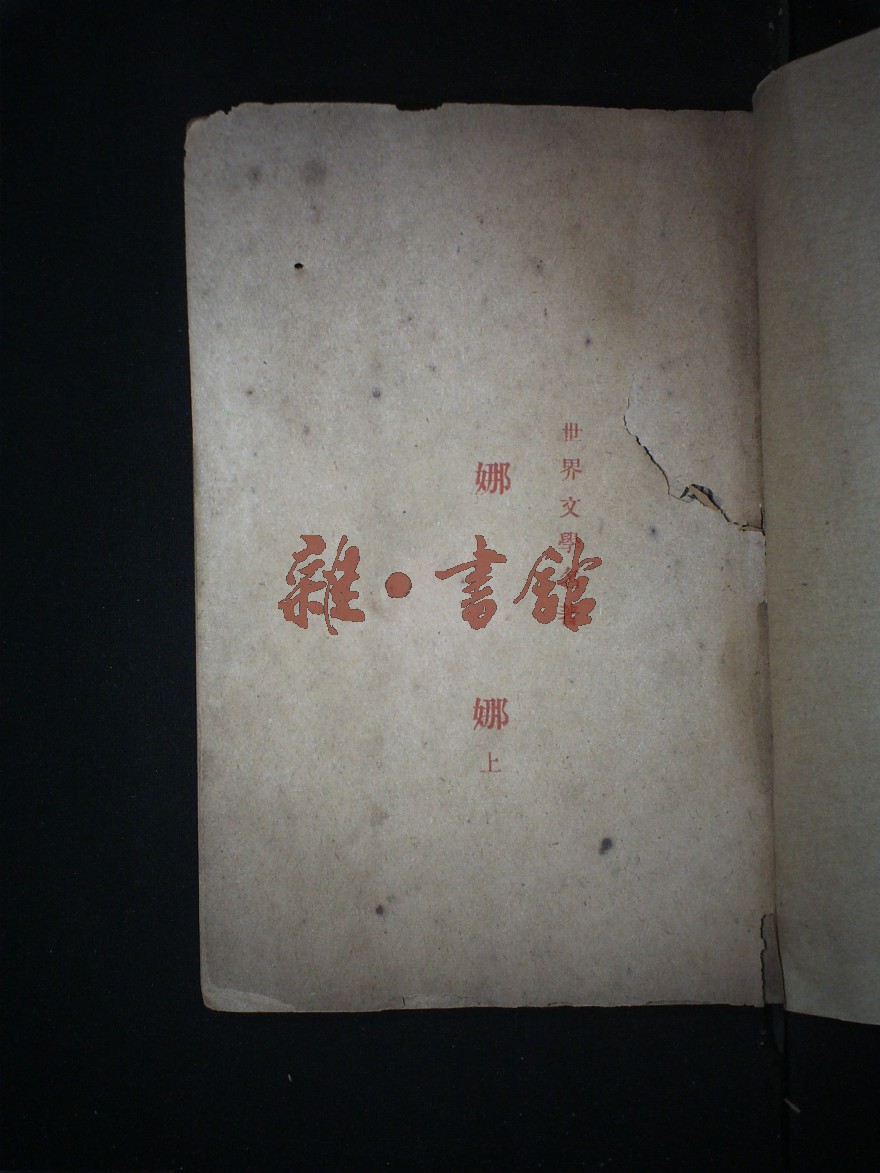 世界文學
娜娜
上
雜·書館